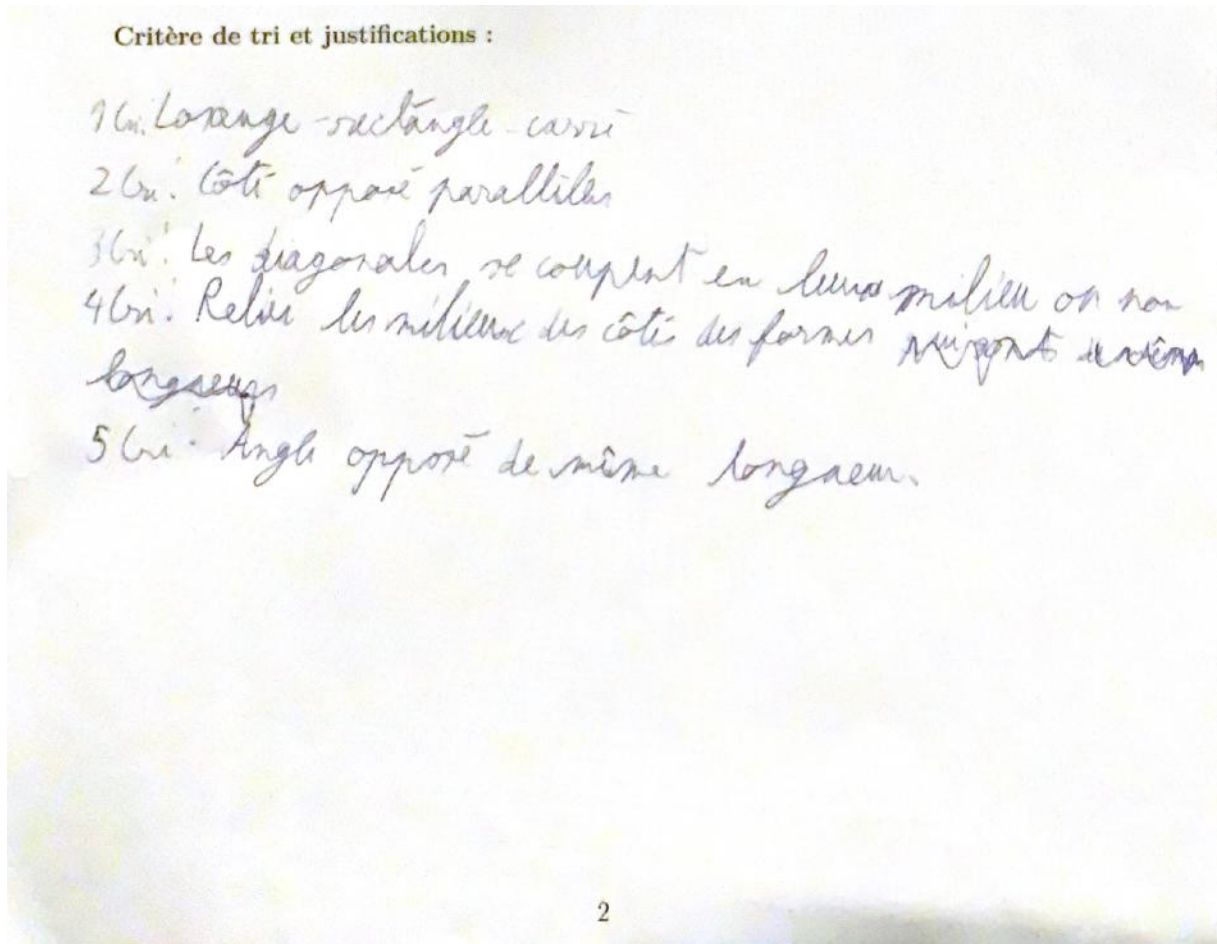 Critère de tri et justifications :
1 Cri. Losange - rectangle - carré
2 Cri. Côté opposé parallèles
3 Cri. Les diagonales se coupent en leurs milieu ou non
4 Cri. Relier les milieux des côtés des formes
longueurs
5 Cri. Angle opposé de même longueur.
2